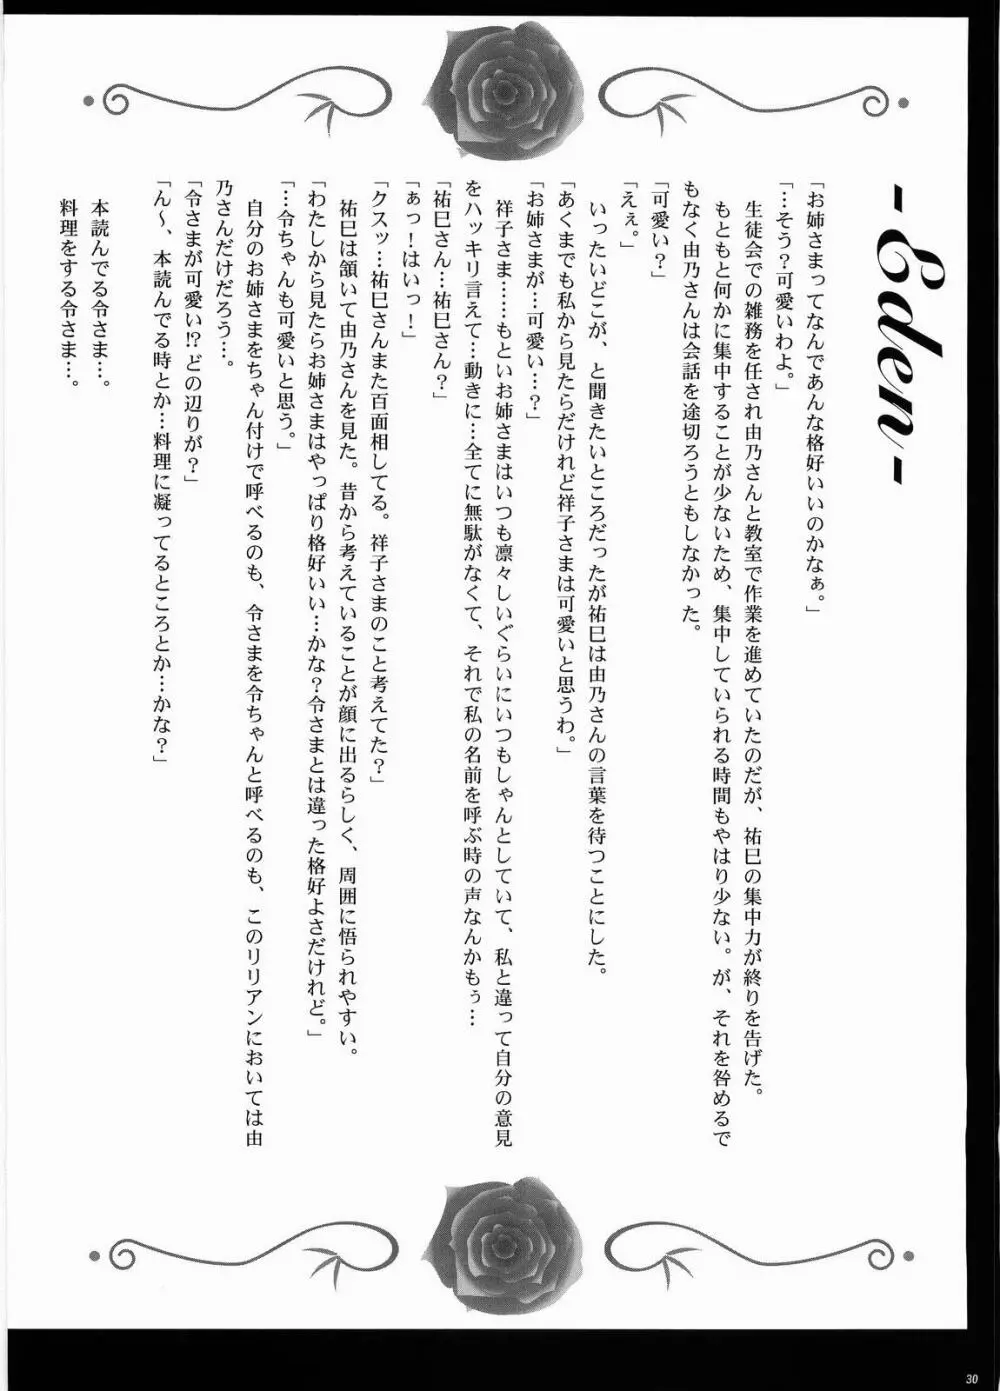 -Eden-
「お姉さまってなんであんな格好いいのかなぁ。」
「…そう？可愛いわよ。」
生徒会での雑務を任され由乃さんと教室で作業を進めていたのだが、祐巳の集中力が終りを告げた。
もともと何かに集中することが少ないため、集中していられる時間もやはり少ない。が、それを咎めるで
もなく由乃さんは会話を途切ろうともしなかった。
「可愛い？」
「えぇ。」
いったいどこが、と聞きたいところだったが祐巳は由乃さんの言葉を待つことにした。
「あくまでも私から見たらだけれど祥子さまは可愛いと思うわ。」
「お姉さまが…可愛い…？」
祥子さま……もといお姉さまはいつも凛々しいぐらいにいつもしゃんとしていて、私と違って自分の意見
をハッキリ言えて…動きに…全てに無駄がなくて、それで私の名前を呼ぶ時の声なんかもぅ…
「祐巳さん…祐巳さん？」
「ぁっ！はいっ！」
「クスッ…祐巳さんまた百面相してる。祥子さまのこと考えてた？」
祐巳は頷いて由乃さんを見た。昔から考えていることが顔に出るらしく、周囲に悟られやすい。
「わたしから見たらお姉さまはやっぱり格好いい…かな？令さまとは違った格好よさだけれど。」
「…令ちゃんも可愛いと思う。」
自分のお姉さまをちゃん付けで呼べるのも、令さまを令ちゃんと呼べるのも、このリリアンにおいては由
乃さんだけだろう…。
「令さまが可愛い!?どの辺りが？」
「ん〜、本読んでる時とか…料理に凝ってるところとか…かな？」
本読んでる令さま…。
料理をする令さま…。
30